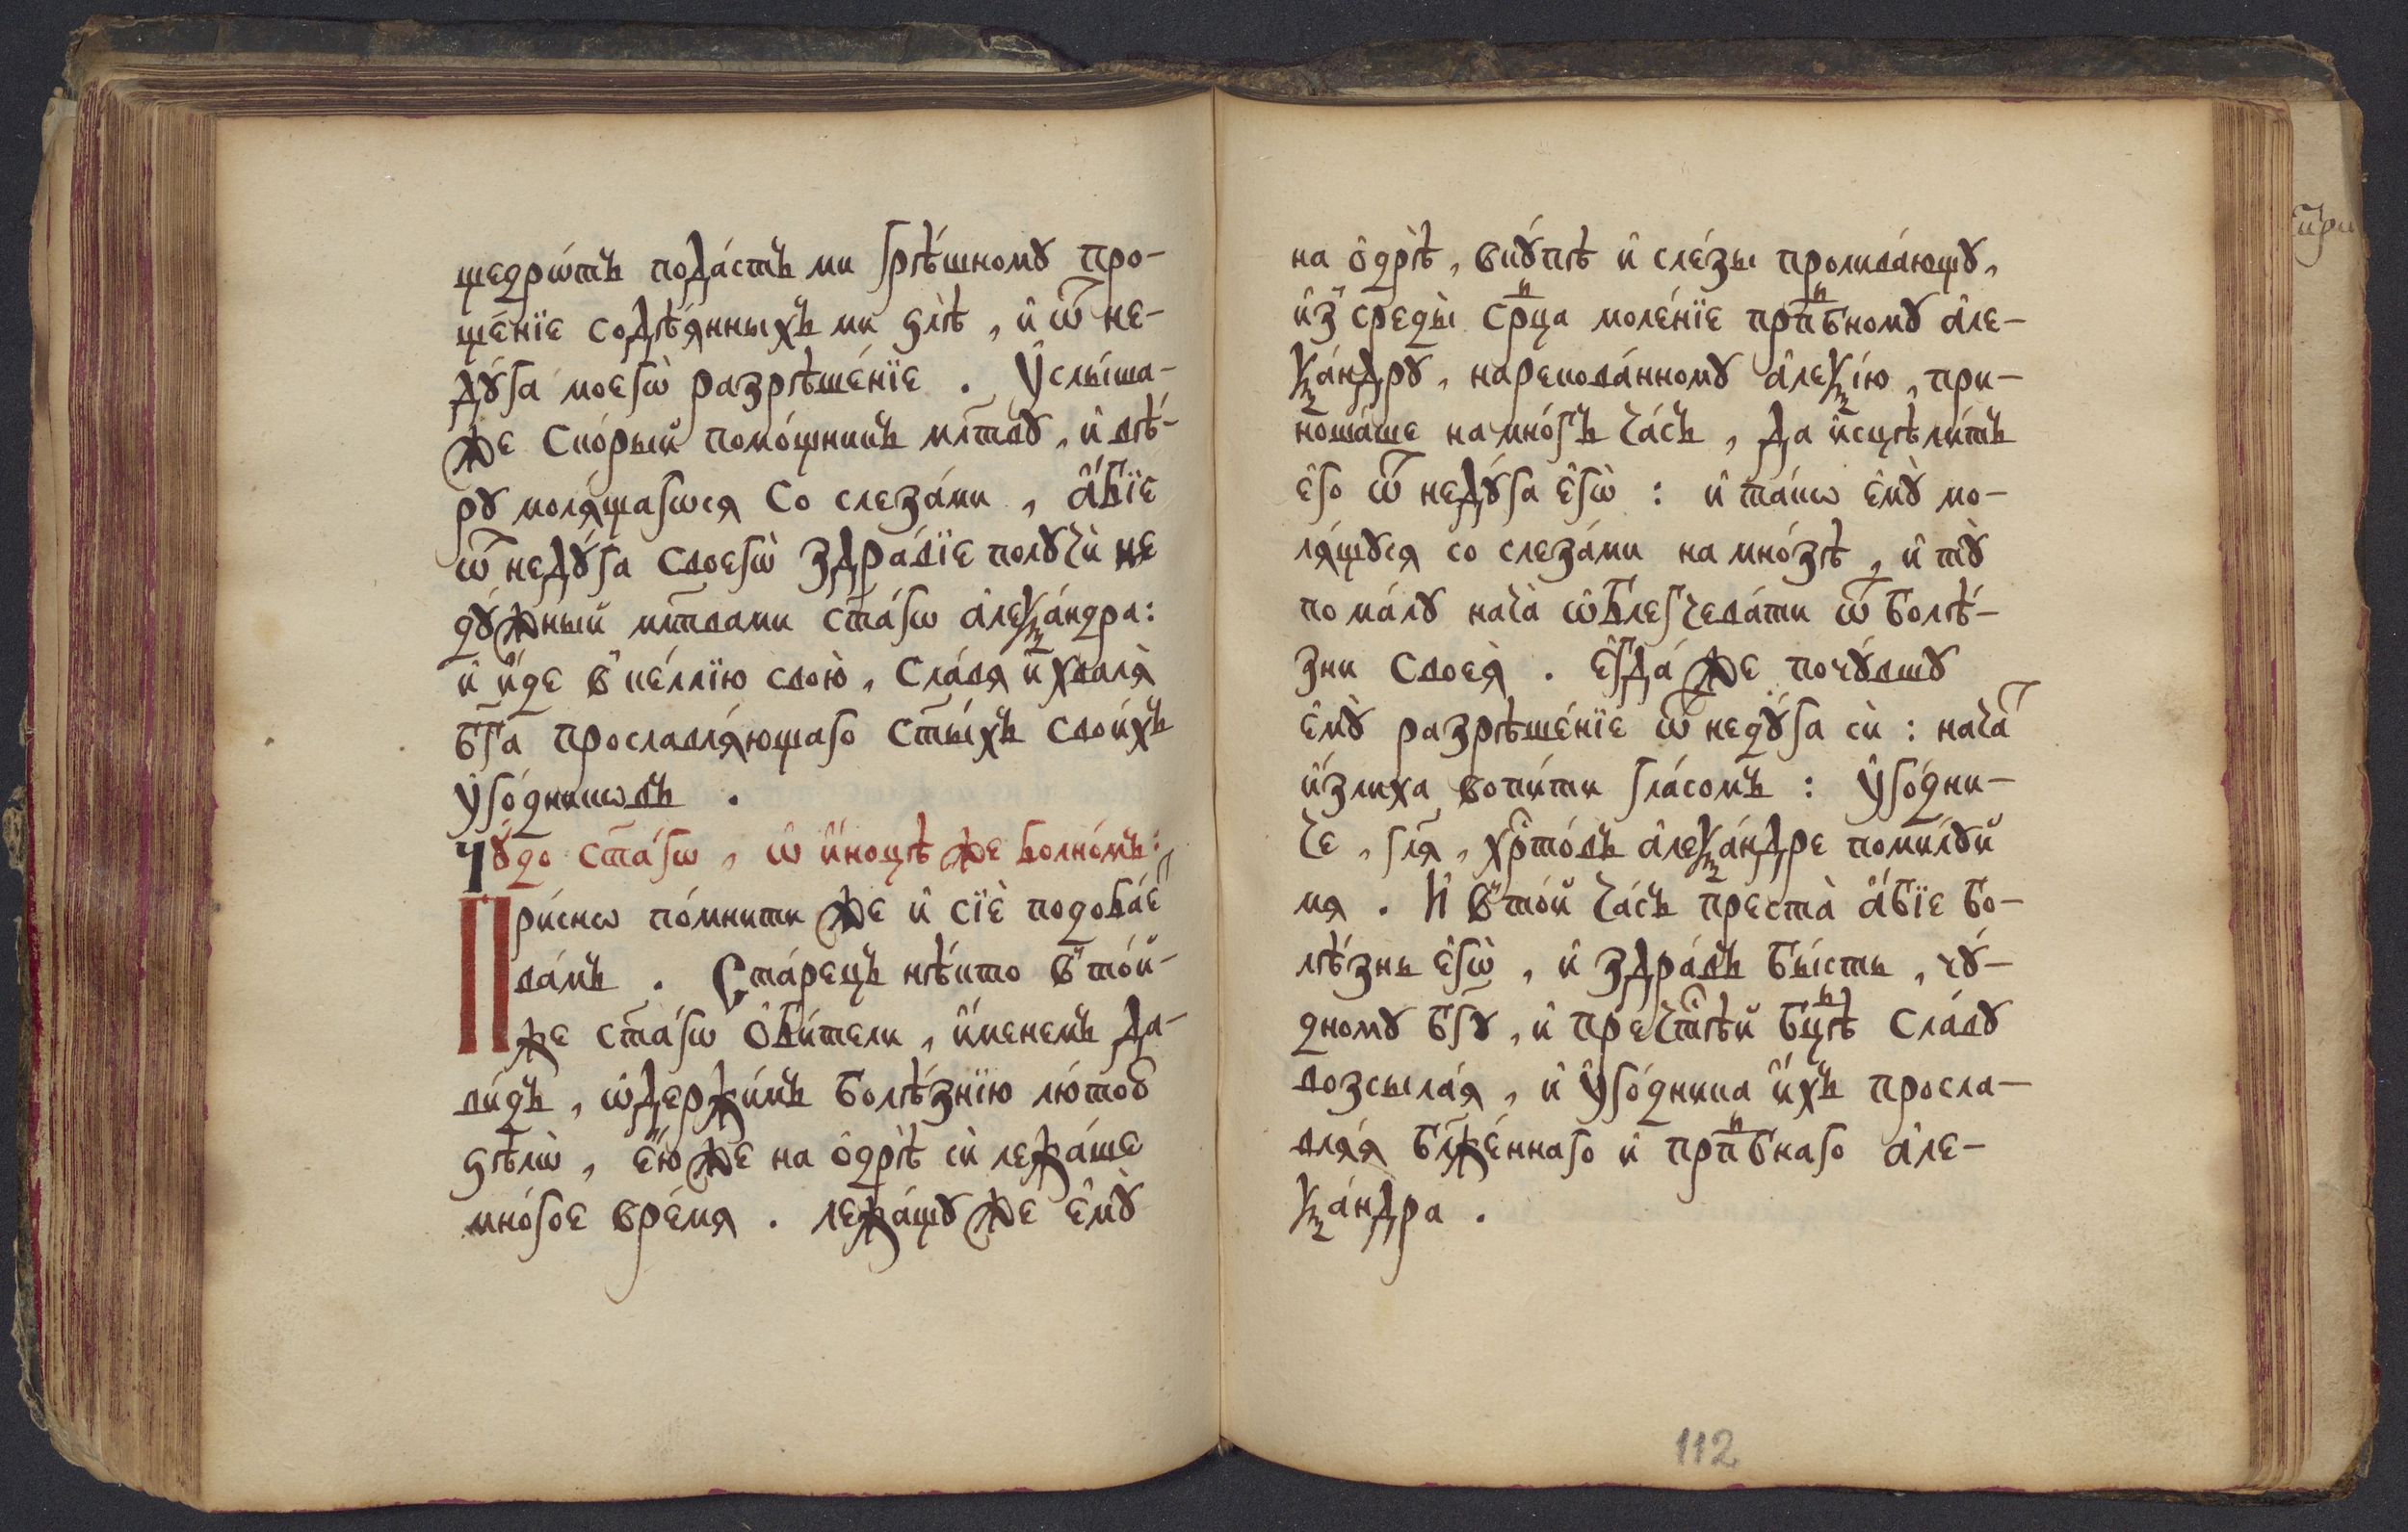 щедрѡ́тъ пода́стъ ми грѣ́шномꙋ про-
ще́нїе содѣ́ѧнныхъ ми ѕлѣ̀, и҆ ѿ не-
дꙋ́га моегѡ̀ разрѣше́нїе. Оу҆слы́ша-
же ско́рый помо́щникъ мл҃твꙋ, и҆ вѣ́-
рꙋ молѧ́щагѡсѧ со слеза́ми, а҆́бїе
ѿ недꙋ́га своегѡ̀ здра́вїе полꙋчѝ не
дꙋ́жный мл҃твами ст҃а́гѡ а҆леѯа́ндра:
и҆ и҆́де в ке́ллїю свою̀, сла́вѧ и҆ хвалѧ̀
бг҃а прославлѧ́ющаго ст҃ы́хъ свои́хъ
ᲂу҆го́дникѡвъ.
Чꙋ́до ст҃а́гѡ, ѡ҆ и҆́ноцѣ же болно́мъ:
При́снѡ по́мнити же и҆ сїѐ подоба́еⷮ
ва́мъ. Ста́рецъ нѣ́кто в то́й-
же ст҃а́гѡ ѻ҆би́тели, и҆́менемъ Да-
ви́дъ, ѡ҆держи́мъ болѣ́знїю лю́тоѹ
ѕѣлѡ̀, е҆́юже на ѻ҆дрѣ̀ сѝ лежа́ше
мно́гое вре́мѧ. лежа́щꙋ же е҆мꙋ̀
на ѻ҆дрѣ̀, вкꙋ́пѣ и҆ сле́зы пролива́ющꙋ,
и҆з среды̀ср҃ца моле́нїе прпⷣбномꙋ а҆ле-
ѯа́ндрꙋ, нарекова́нномꙋ а҆леѯі́ю, при-
ноша́ше на мно́гъ ча́съ, да и҆сцѣли́тъ
е҆го ѿ недꙋ́га е҆гѡ̀: и҆ та́кѡ е҆мꙋ̀ мо-
лѧ́щꙋсѧ со слеза́ми на мно́зѣ, и҆ тꙋ̀
по ма́лꙋ нача̀ ѡ҆блегчева́ти ѿ болѣ́-
зни своеѧ̀. Е҆гда́ же почꙋ́вшꙋ
е҆мꙋ̀ разрѣше́нїе ѿ недꙋ́га сѝ: нача́ⷮ
и҆́злиха вопи́ти гла́сомъ: ᲂу҆го́дни-
че, гл҃ѧ, хрⷭ҇то́въ а҆леѯа́ндре поми́лꙋй
мѧ. И҆ в то́й ча́съ преста̀ а҆́бїе бо-
лѣ́знь е҆гѡ̀, и҆ здра́въ бы́сть, чꙋ́-
дномꙋ бг҃ꙋ, и҆ пречⷭ҇тѣй бцⷣѣ сла́вꙋ
возсыла́ѧ, и҆ ᲂу҆го́дника и҆́хъ просла-
влѧ́ѧ бл҃же́ннаго и҆ прпⷣбнаго а҆ле-
ѯа́ндра.
112